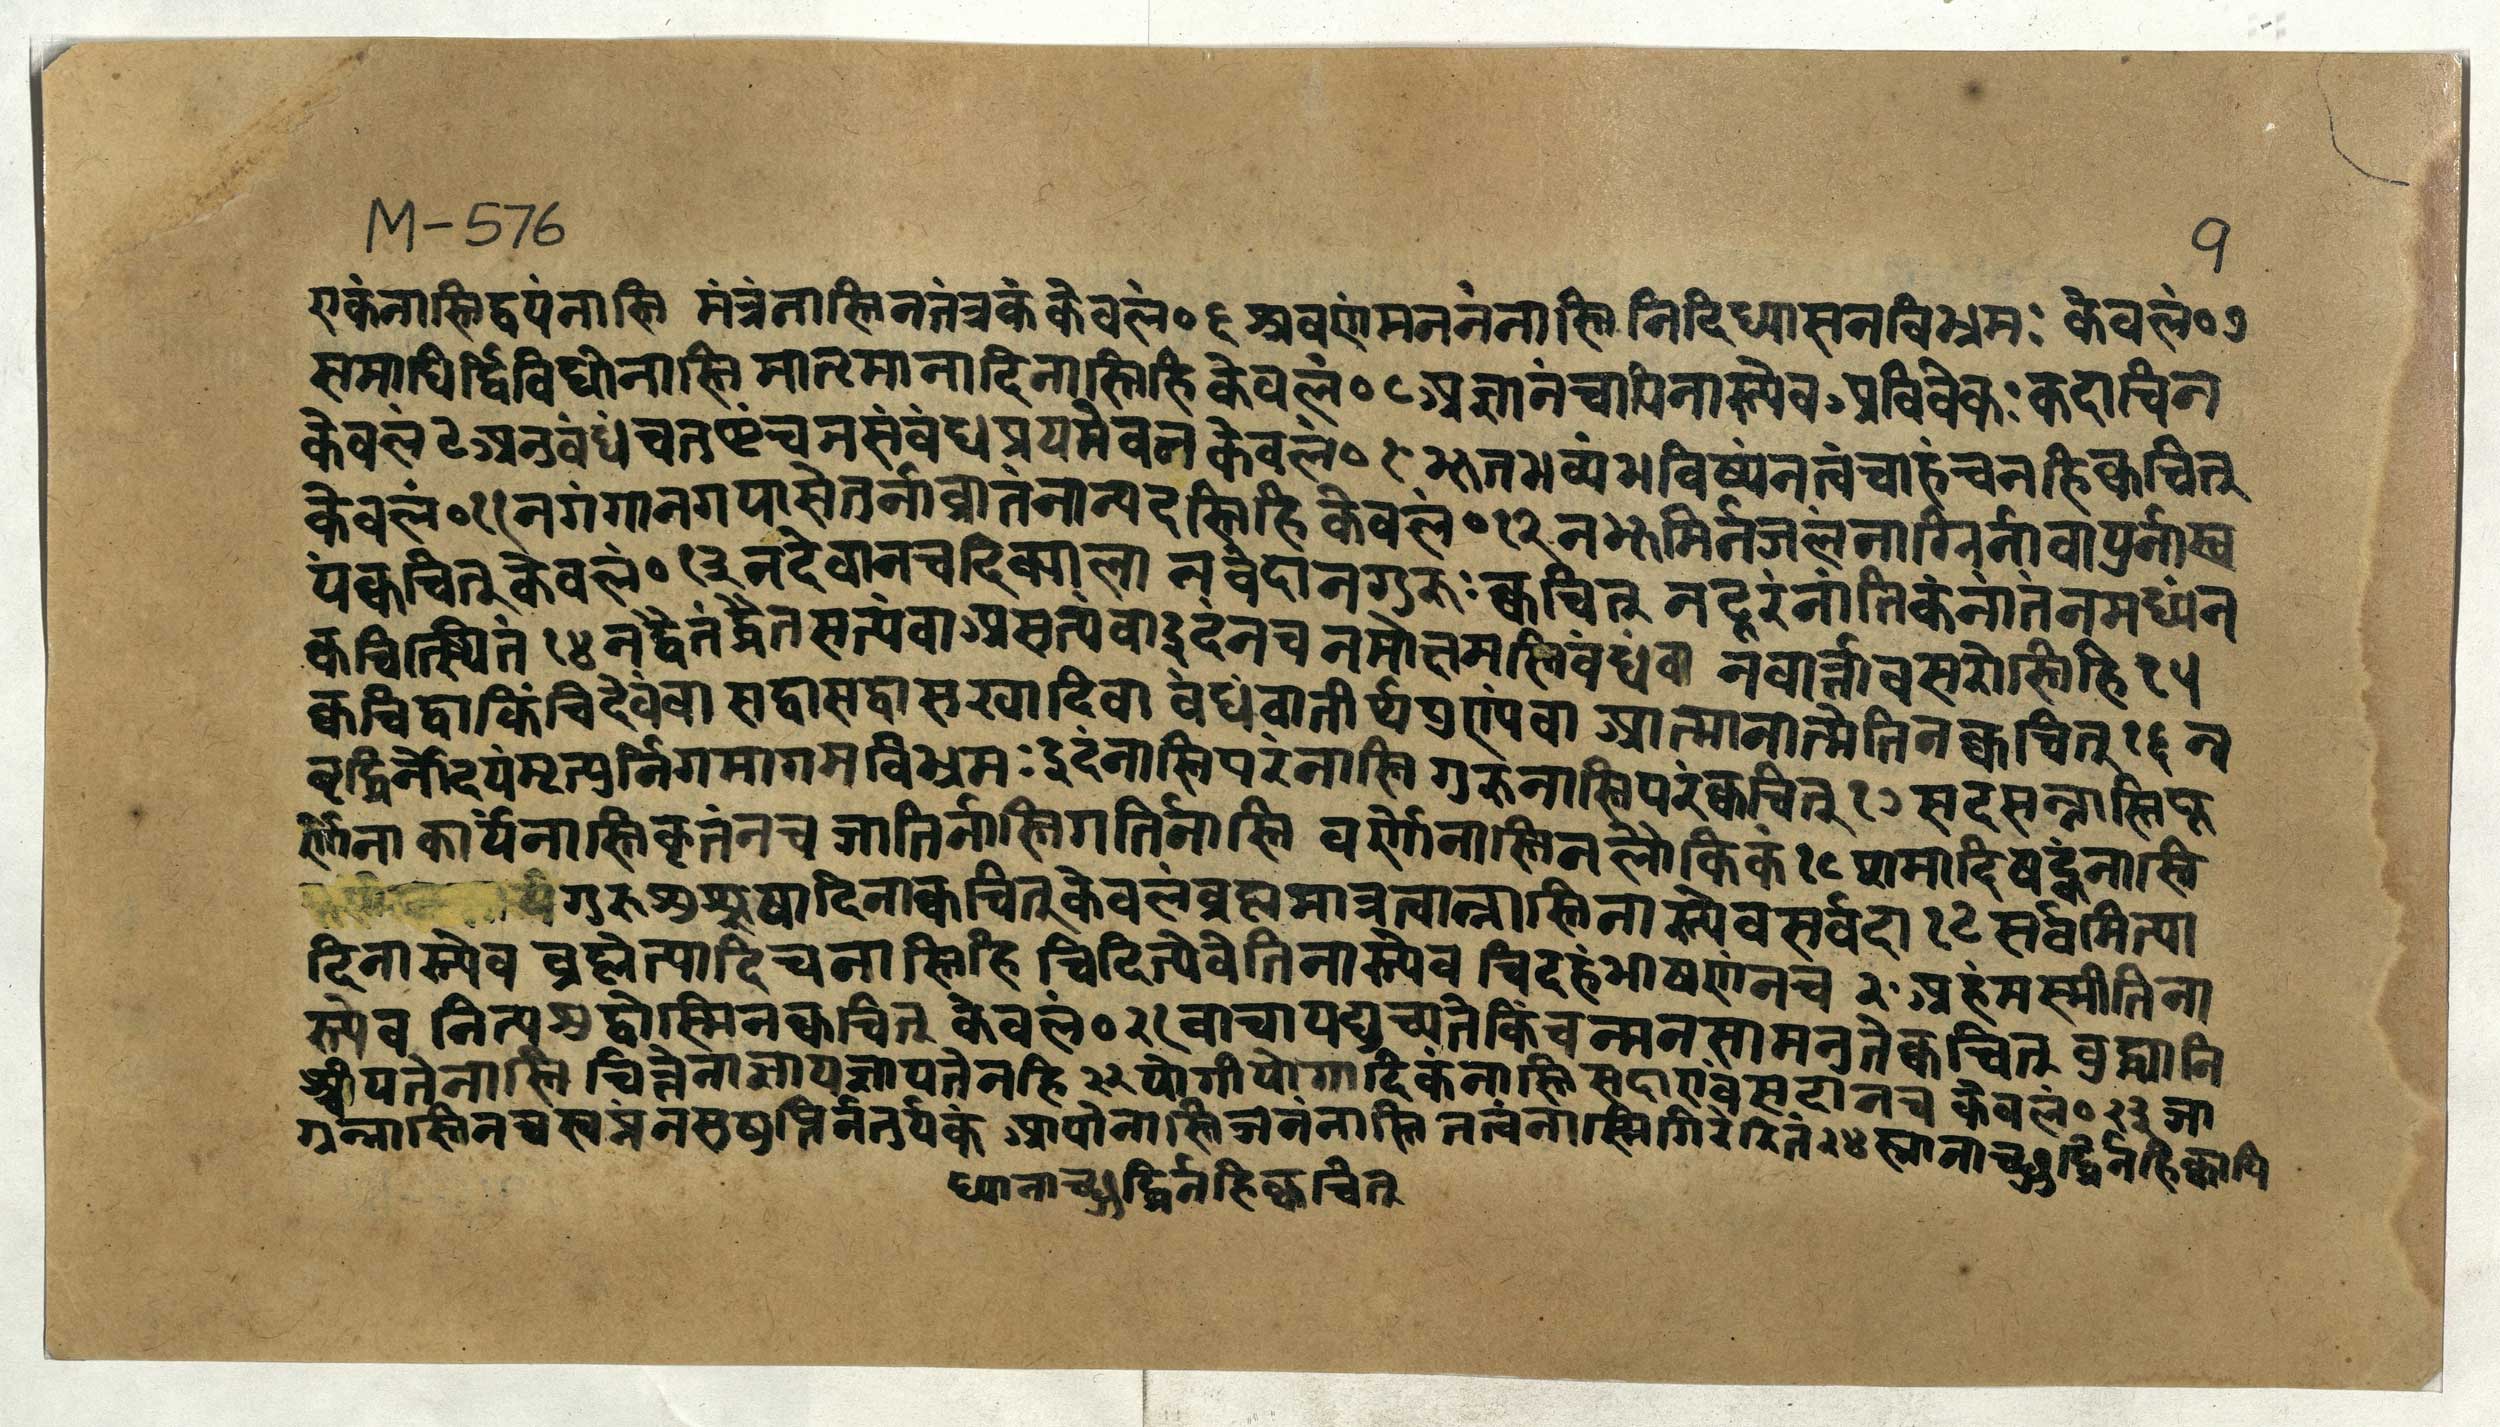 M-576
9
एकंनास्तिद्वयंनास्ति मंत्रंनास्तिनतंत्रकंकेवलं० ६ श्रवणंमननंनास्ति निदिध्यासनविभ्रमः केवलं०७
समाधिर्द्विविधोनास्ति मातृमानादिनास्तिहिकेवलं० ८ अज्ञानंचापिनास्त्येव अविवेकः कदाचिन
केवलं ९ अनुबंधंचतुष्टंचनसंबंधत्रयमेवन केवलं० १० भूतभव्यंभविष्यंनत्वंचाहंचनहिक्वचित्
केवलं० ११ नगंगानगयासेतुर्नाव्रातंनान्यदस्तिहिकेवलं० १२ नभूमिर्नजलंनाग्निर्नावायुर्नास्व
यंक्वचित्केवलं० १३ नदेवानचदिक्पाला नवेदानगुरुः क्वचित् नदूरंनांतिकंनांतंनमध्यंन
क्वचित्स्थितं १४ नद्वैतंद्वैतसत्यंवाअसत्यंवाइदंनच नमोत्तमस्तिबंधंवा नवार्त्तावसरोस्तिहि १५
क्वचिद्वाकिंचिदेवंवा सद्वासद्वासुखादिवा बंधंवातीर्थ्य वा आत्मानात्मेतिनक्वचित् १६ न
वृद्धिर्नोदयंमृत्युर्निगमागमविभ्रमः इदंनास्तिपरंनास्ति गुरुनास्तिपरंक्वचित् १७ सदसन्नास्ति
नाकार्यंनास्तिकृतंनच जातिर्नास्तिगतिर्नास्ति वर्णोनास्तिनलौकिकं १८ षट्कंनास्ति
गुरुशुश्रूषादिनाक्वचित्केवलंब्रह्ममात्रत्वान्नास्तिनास्त्येवसर्वदा १९ सर्वमित्या
दिनास्त्येव ब्रह्मेत्यादिचनास्तिहि चिदित्येवेतिनास्त्येव चिदहंभाषणंनच २० अहंमस्मीतिना
स्त्येव नित्यशुद्धोस्मिनक्वचित् केवलं० २१ वाचायद्युच्यतेकिंचन्मनसामनुतेक्वचित् बुद्ध्यानि
श्चीयतेनास्ति चित्तेनाज्ञायज्ञायतेनहि २२ योगीयोगादिकंनास्ति सदाएवंसदानच केवलं० २३ जा
ग्रन्नास्तिनचस्वप्नंनसुषुप्तिर्नतुर्यकं आपोनास्तिजननंनास्ति तत्वंनास्ति २४ स्नानाच्छुद्धिर्नहिक्वापि
ध्यानाच्छुद्धिर्नहिक्वचित्